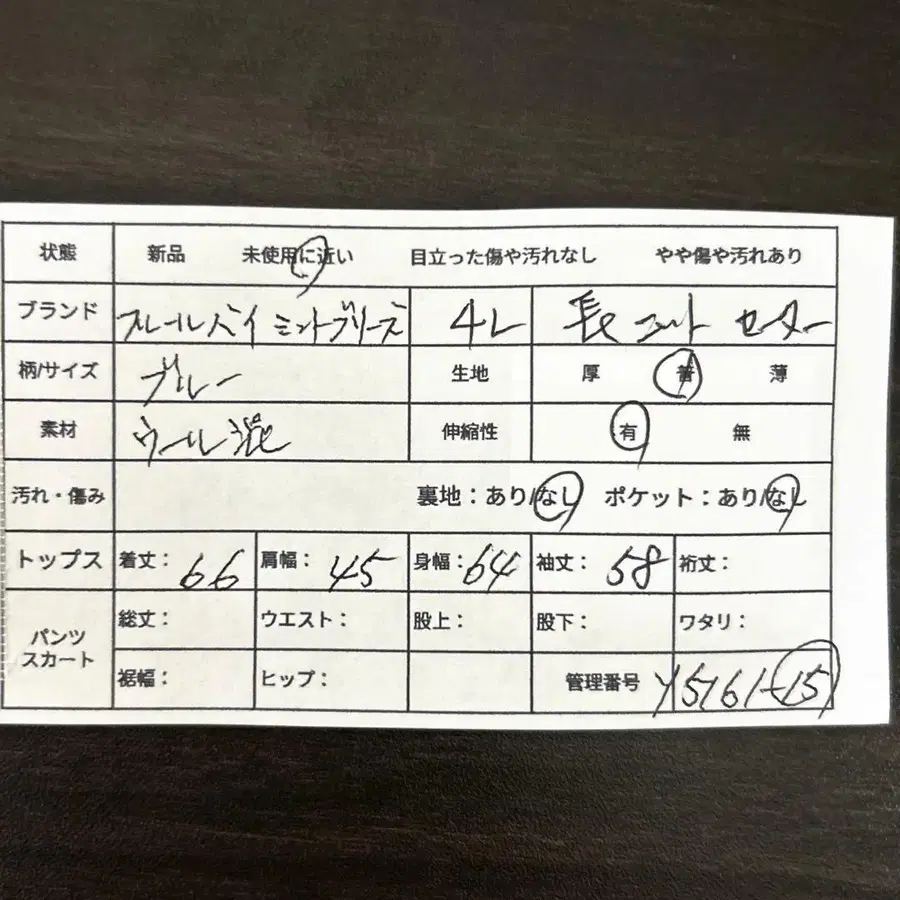 状態 新品 未使用に近い 目立った傷や汚れなし やや傷や汚れあり
ブランド フルールバイミントブリーズ 4L 長ニット セーター
柄/サイズ ブルー 生地 厚 普 薄
素材 ウール混 伸縮性 有 無
汚れ・傷み 裏地：あり/なし ポケット：あり/なし
トップス 着丈：66 肩幅：45 身幅：64 袖丈：58 裄丈：
パンツ スカート 総丈： ウエスト： 股上： 股下： ワタリ：
裾幅： ヒップ： 管理番号 Y5161-15